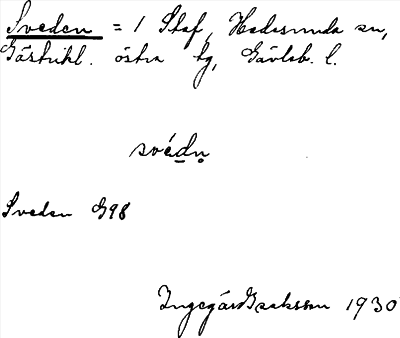 Sveden = 1 Staf, Hedesunda sn,
Gästrikl. östra tg, Gävleb. l.
svédn̥
Sveden G98
Ingegärd Isaksson 1930